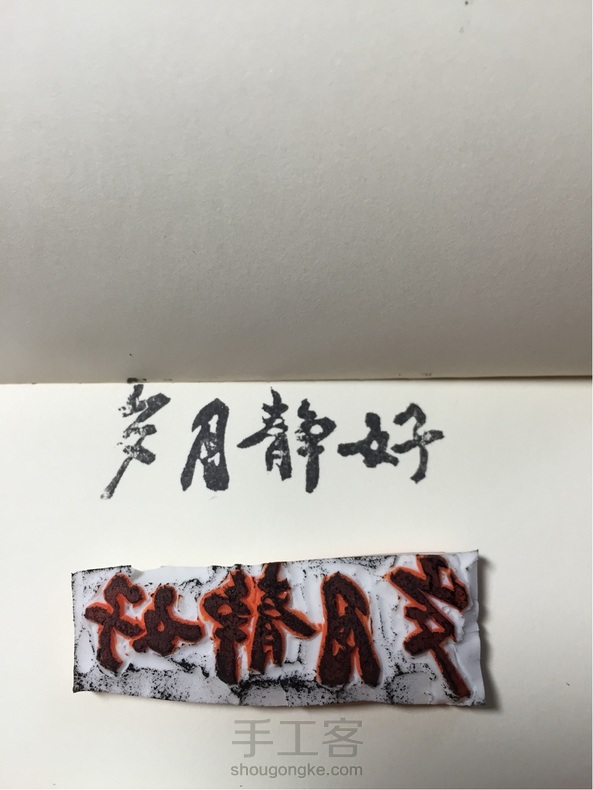 岁月静好
岁月静好
手工客
shougongke.com